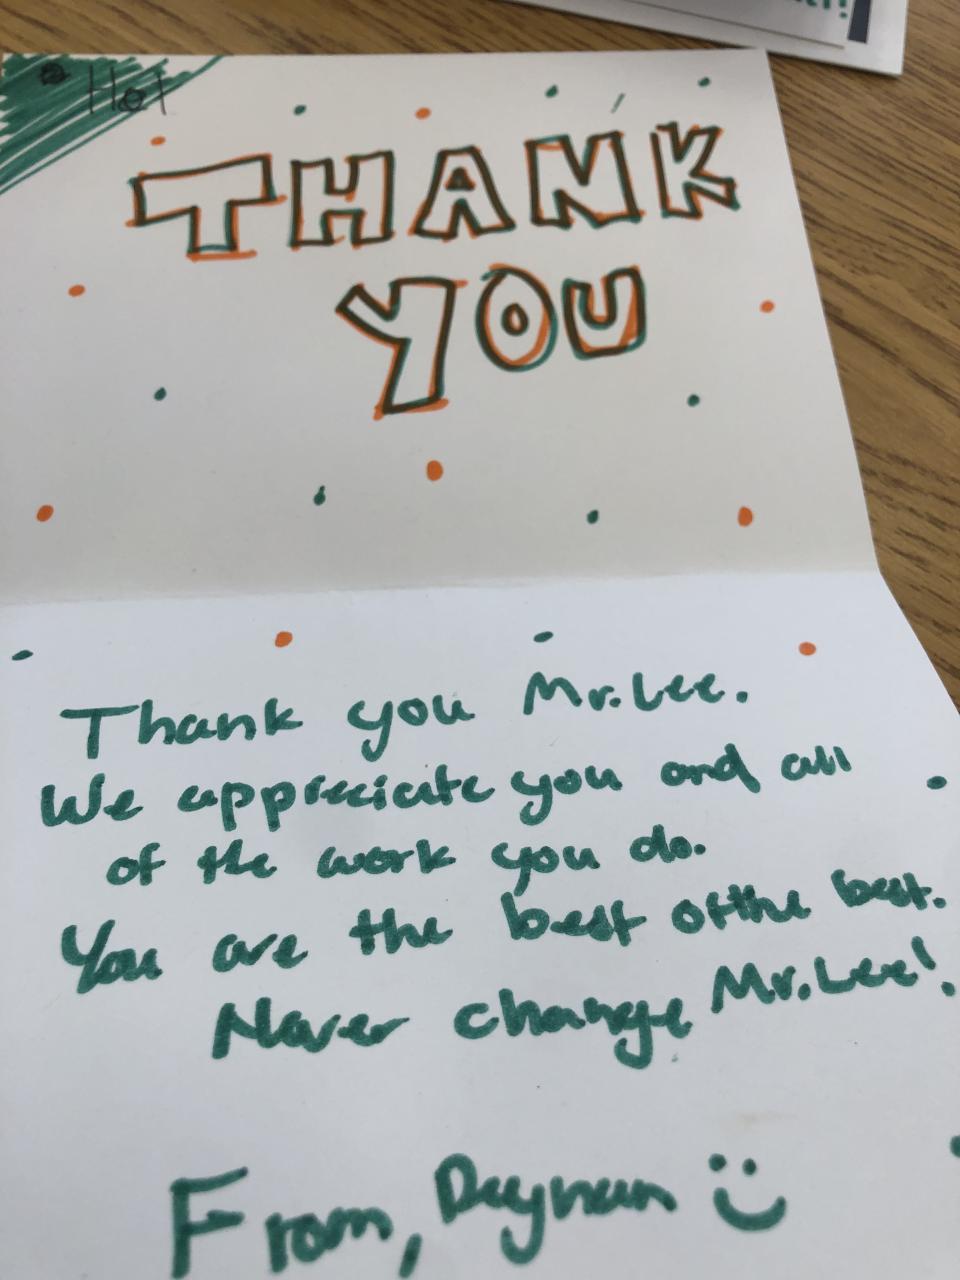 THANK
YOU
Thank you Mr. Lee.
We appreciate you and all
of the work you do.
You are the best of the best.
Never change Mr. Lee!
From,